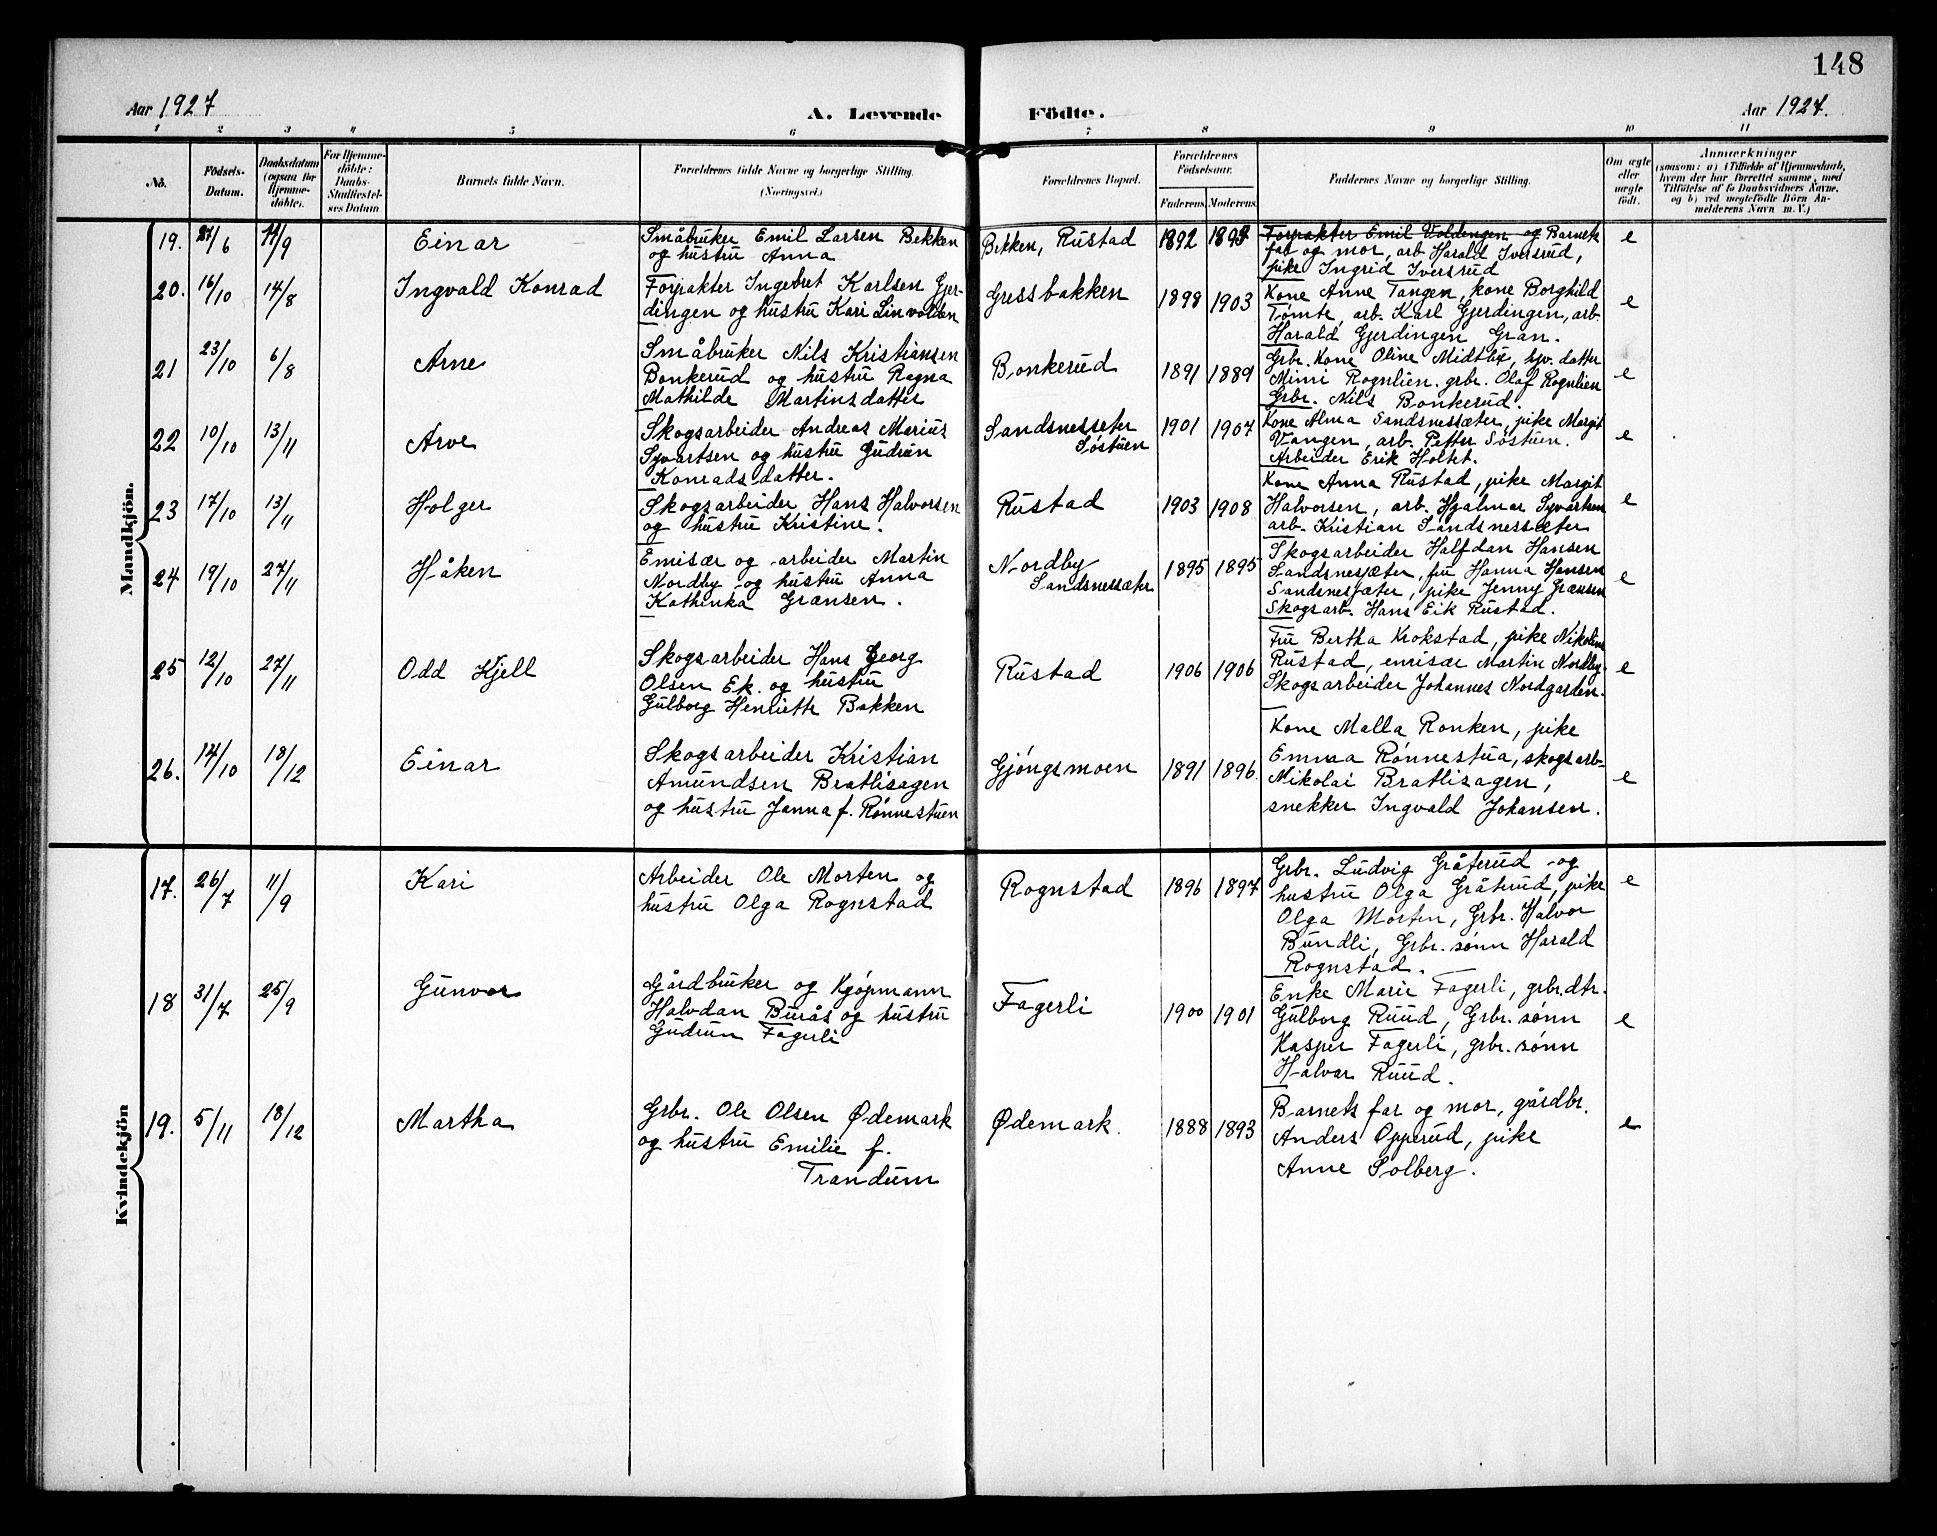 148
Aar 1927
A. Levende Födte.
Aar 1927.
1 2 3 4 5 6 7 8 9 10 11
No.
Födsels-Datum.
Daabsdatum (ogsaa for Hjemme-döbte).
For Hjemme-döbte: Daabs-Stadfæstel-ses Datum
Barnets fulde Navn.
Forældrenes fulde Navne og borgerlige Stilling.
(Næringsvei.)
Forældrenes Bopæl.
Forældrenes Födselsaar.
Faderens. Moderens.
Faddernes Navne og borgerlige Stilling.
Om ægte eller uægte födt.
Anmærkninger
(saasom: a) i Tilfælde af Hjemmedaab,
hvem der har forrettet samme, med
Tilföielse af to Daabsvidners Navne,
og b) ved uægtefödte Börn An-
melderens Navn m. V.)
Mandkjön.
19. 27/6 11/9 Einar
Småbruker Emil Larsen Bekken
og hustru Anna
Bekken, Rustad 1892 1897
Forpakter Emil Voldengen og Barnets
far og mor, arb Harald Iversrud,
pike Ingrid Iversrud
e
20. 16/10 14/8 Ingvald Konrad
Forpakter Ingebret Karlsen Gjer-
dingen og hustru Kari Linvolden
Gressbakken 1898 1903
Kone Anne Tangen, kone Borghild
Tømte, arb. Karl Gjerdingen, arb.
Harald Gjerdingen Gran.
e
21 23/10 6/8 Arne
Småbruker Nils Kristiansen
Bonkerud og hustru Ragna
Mathilde Martinsdatter
Bonkerud 1891 1889
Grbr. Kone Oline Midtbø, hjv. datter
Mimi Rognlien. grbr. Olaf Rognlien
Grbr. Nils Bonkerud.
e
22 10/10 13/11 Arve
Skogsarbeider Andreas Marius
Syvartsen og hustru Gudrun
Konradsdatter.
Sandsnesseter
Søstuen
1901 1907
Kone Alma Sandsnessæter, pike Margit
Vangen, arb. Petter Søstuen.
Arbeider Erik Holtet.
e
23 17/10 13/11 Holger
Skogsarbeider Hans Halvorsen
og hustru Kristine.
Rustad 1903 1908
Kone Anna Rustad, pike Margit
Halvorsen, arb. Hjalmar Syvartsen
arb. Kristian Sandsnessæter
e
24 19/10 27/11 Håken
Emisær og arbeider Martin
Nordby og hustru Anna
Kathinka Grænsen.
Nordby
Sandsnessæter
1895 1895
Skogsarbeider Halfdan Hansen
Sandsnessæter, fru Hanna Hansen
Sandsnessæter, pike Jenny Grænsen
Skogsarb. Hans Eik Rustad.
e
25 12/10 27/11 Odd Kjell
Skogsarbeider Hans Georg
Olsen Ek. og hustru
Gulborg Henriette Bakken
Rustad 1906 1906
Fru Bertha Krokstad, pike Nikoline
Rustad, emisær Martin Nordby.
Skogsarbeider Johannes Nordgarden.
e
26. 14/10 18/12 Einar
Skogsarbeider Kristian
Amundsen Bratlisagen
og hustru Janna f. Rønnestuen
Gjóngsmoen 1891 1896.
Kone Malla Ronken, pike
Emma Rønnestua, skogsarb-
Mikolai Bratlisagen,
snekker Ingvald Johansen.
e
Kvindekjön
17. 26/7 11/9 Kari
Arbeider Ole Morten og
hustru Olga Rognstad
Rognstad 1896 1897
Grbr. Ludvig Gråterud og
hustru Olga Gråterud, pike
Olga Morten, Grbr. Halvor
Bundli, Grbr. sønn Harald
Rognstad.
e
18 31/7 25/9 Gunvor
Gårdbruker og Kjøpmann
Halvdan Burås og hustru
Gudrun Fagerli
Fagerli 1900 1901
Enke Marie Fagerli, grbr.dtr.
Gulborg Ruud, Grbr. sønn
Kasper Fagerli, grbr. sønn
Halvar Ruud.
e
19. 5/11 18/12 Martha
Grbr. Ole Olsen Ødemark
og hustru Emilie f.
Trandum
Ødemark. 1888 1893
Barnets far og mor, gårdbr.
Anders Opperud, pike
Anne Solberg.
e